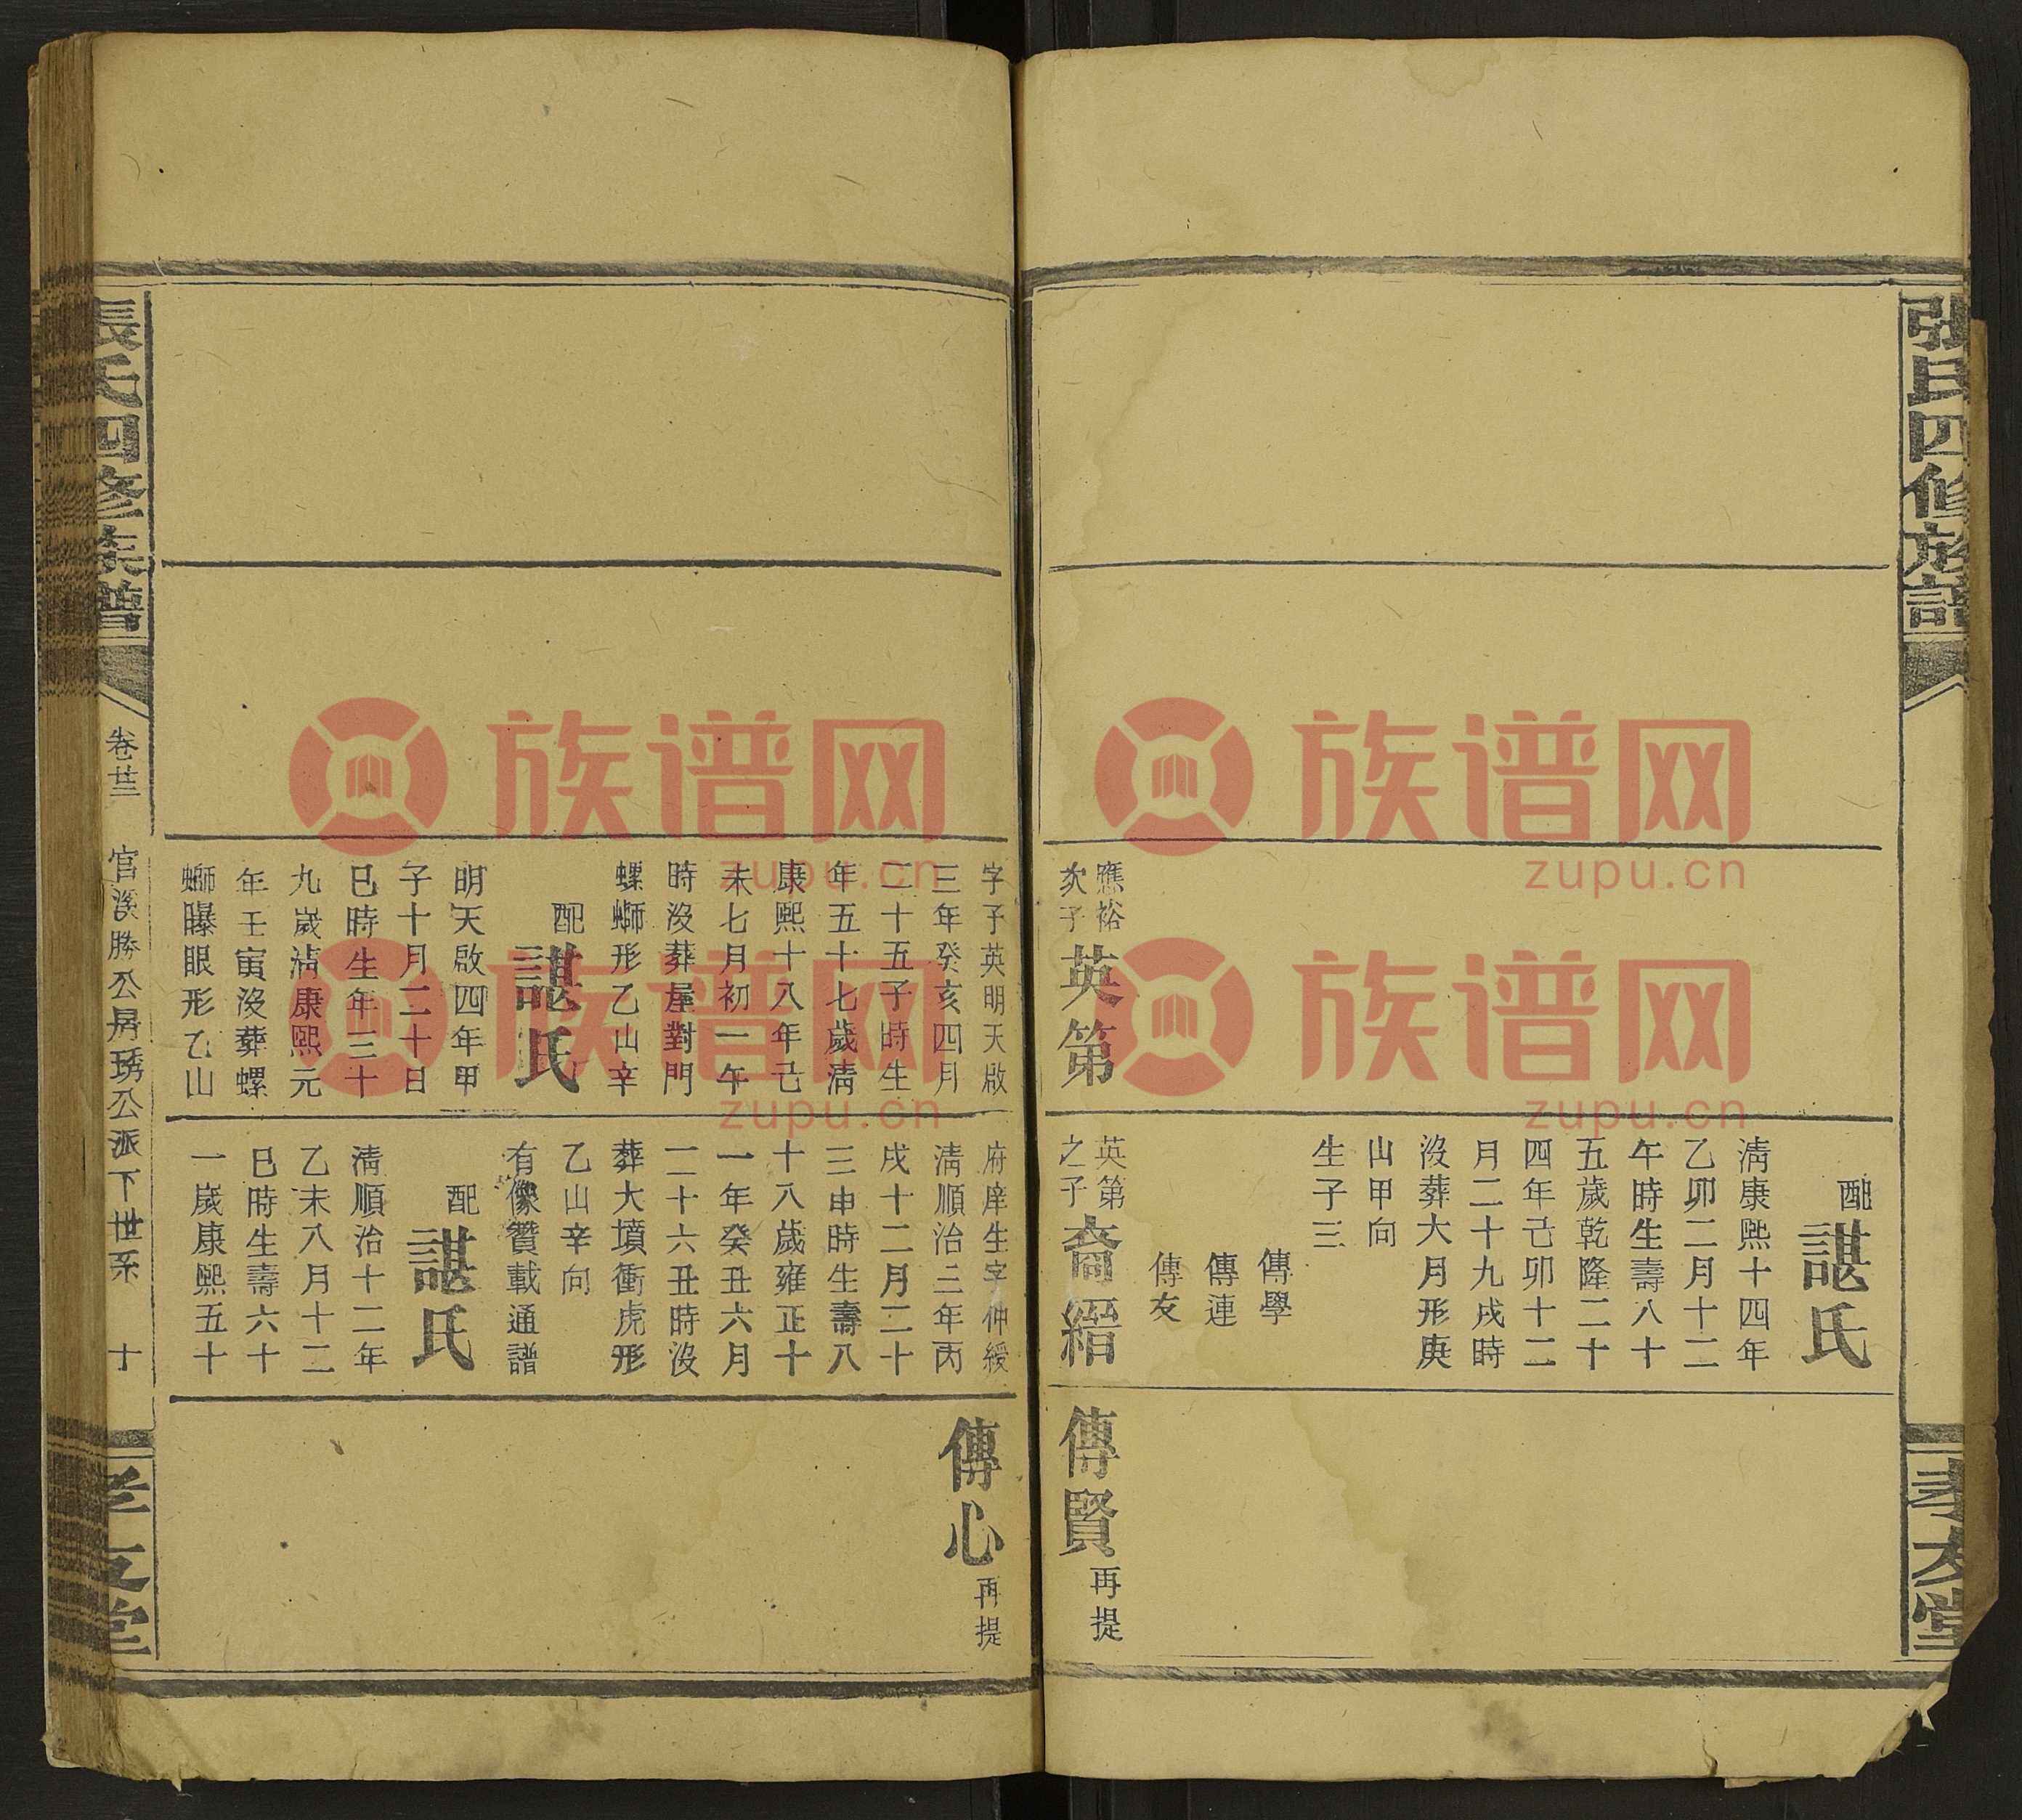 張氏四修族譜
孝友堂
應裕
次子
英第
配
諶氏
淸康熙十四年
乙卯二月十二
午時生壽八十
五歲乾隆二十
四年己卯十二
月二十九戌時
沒葬大月形庚
山甲向
生子三
傳學
傳連
傳友
英第
之子
裔縉
傳賢
再提
字子英明天啟
三年癸亥四月
二十五子時生
年五十七歲淸
康熙十八年己
未七月初一午
時沒葬屋對門
螺螄形乙山辛
配
諶氏
明天啟四年甲
子十月二十日
巳時生年三十
九歲淸康熙元
年壬寅沒葬螺
螄曝眼形乙山
府庠生字仲綬
淸順治三年丙
戌十二月二十
三申時生壽八
十八歲雍正十
一年癸丑六月
二十六丑時沒
葬大墳衝虎形
乙山辛向
有像贊載通譜
配
諶氏
淸順治十二年
乙未八月十二
巳時生壽六十
一歲康熙五十
傳心
再提
張氏四修族譜
卷廿三
官溪勝公房琇公派下世系
十
孝友堂
族谱网
zupu.cn
族谱网
zupu.cn
族谱网
zupu.cn
族谱网
zupu.cn